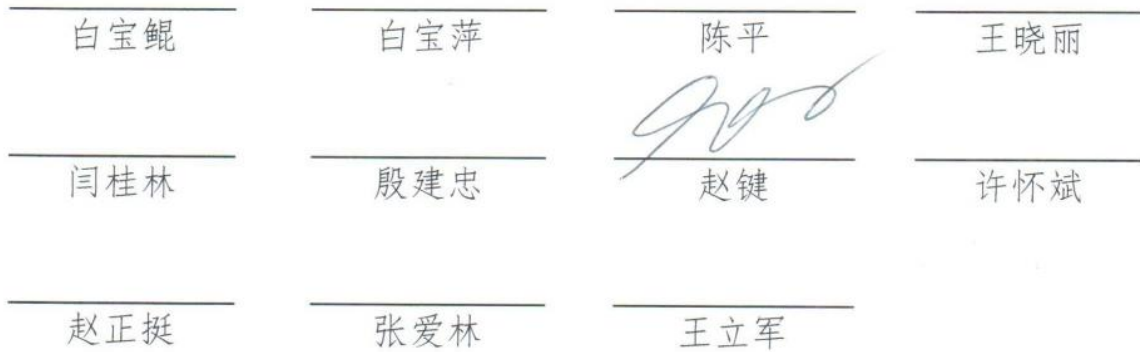 白宝鲲 白宝萍 陈平 王晓丽
闫桂林 殷建忠 赵键 许怀斌
赵正挺 张爱林 王立军